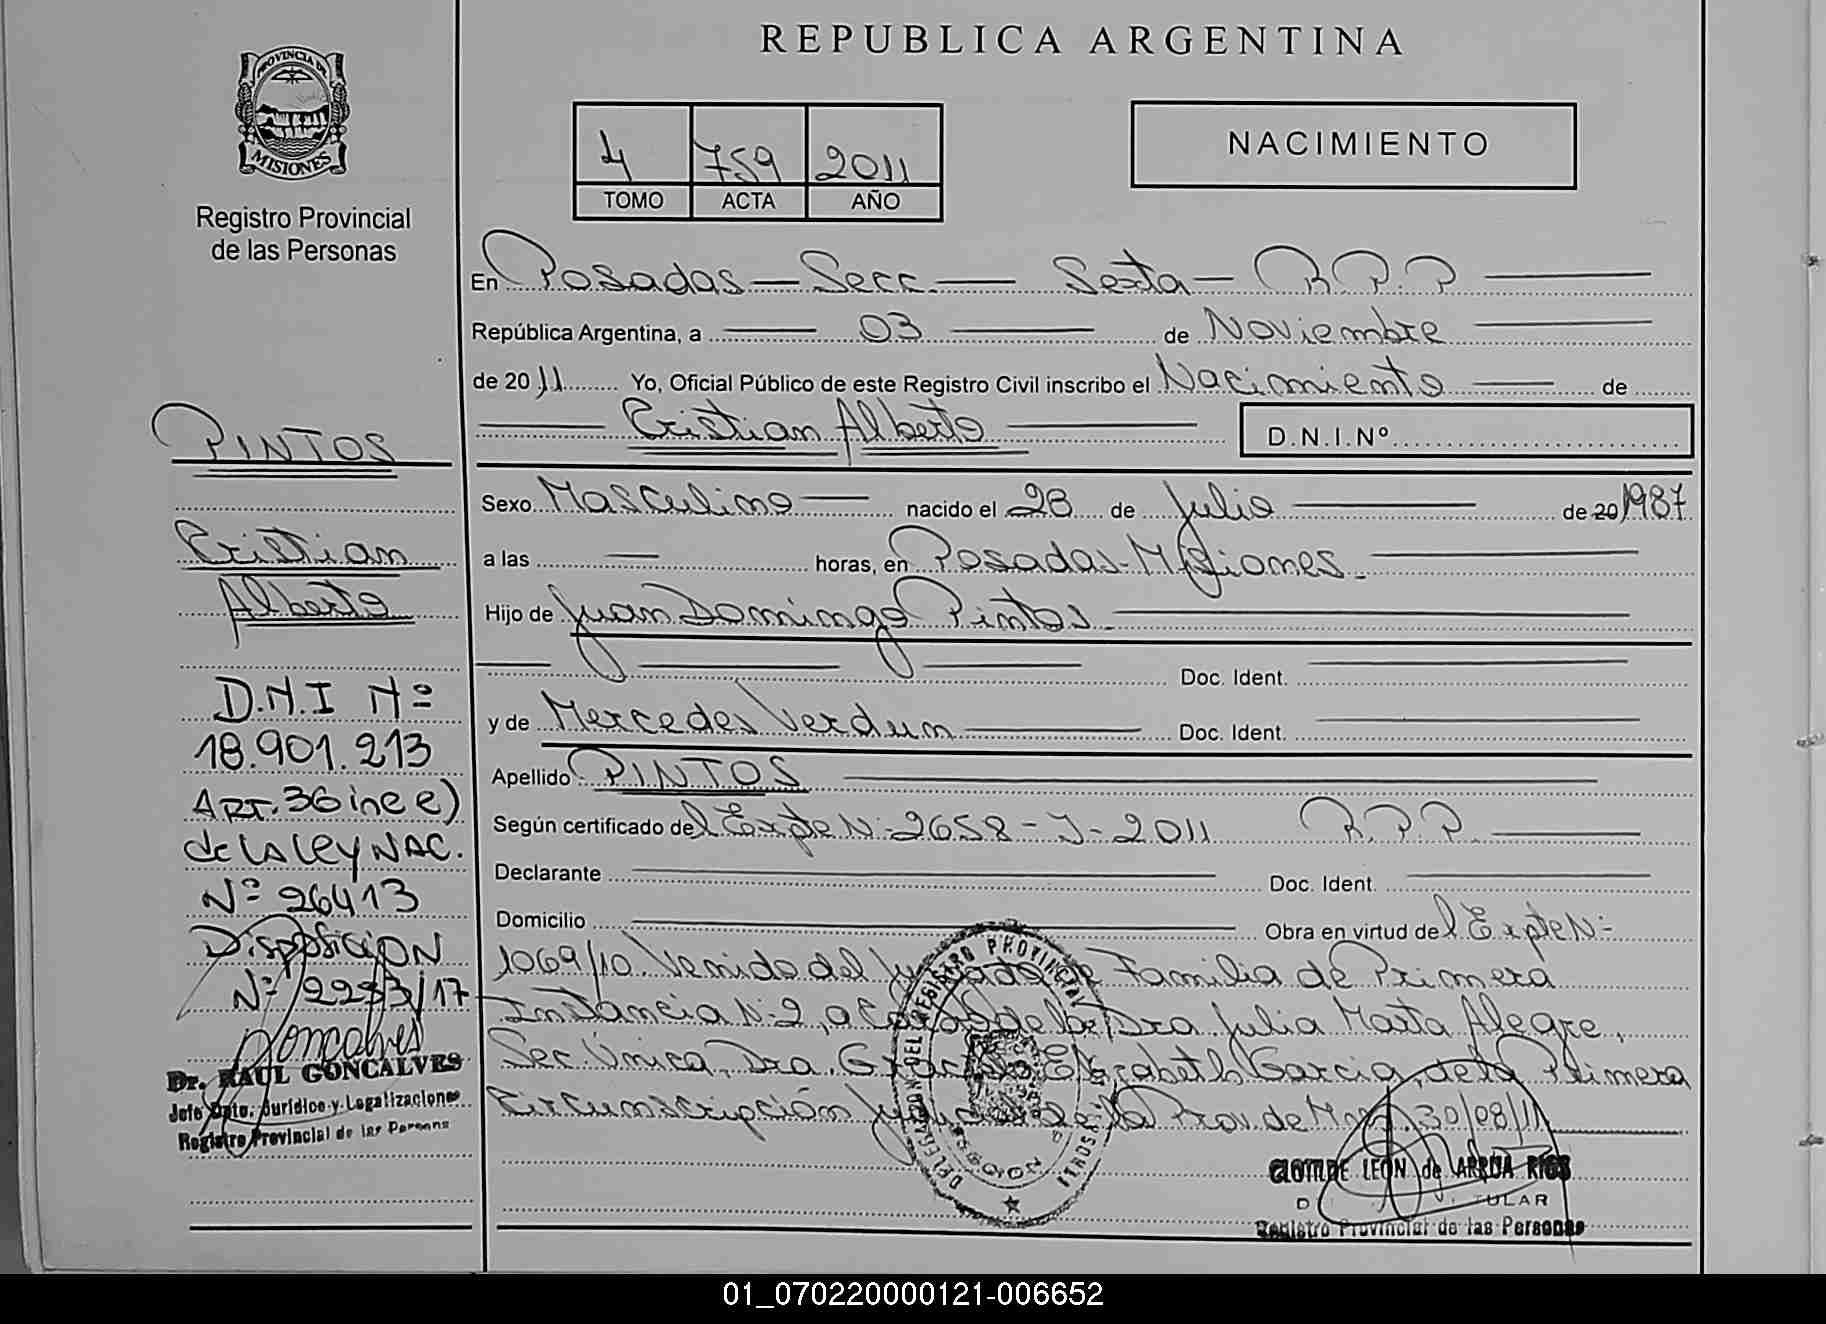 REPUBLICA ARGENTINA
PROVINCIA DE
MISIONES
Registro Provincial
de las Personas
4 759 2011
TOMO ACTA AÑO
NACIMIENTO
En Posadas - Secc. - Sexta - R.P.P
República Argentina, a 03 de Noviembre
de 2011 Yo, Oficial Público de este Registro Civil inscribo el Nacimiento de
Cristian Alberto
D.N.I.Nº
Sexo Masculino nacido el 28 de Julio de 20 1987
a las horas, en Posadas - Misiones.
Hijo de Juan Domingo Pintos.
Doc. Ident.
y de Mercedes Verdun Doc. Ident.
Apellido PINTOS
Según certificado del Expte N: 2658 - J - 2011 R.P.P.
Declarante Doc. Ident.
Domicilio Obra en virtud del Expte N:
1069/10. Venido del Juzgado de Familia de Primera
Instancia N: 2, a Cargo de la Dra Julia Marta Alegre,
Sec. Única, Dra. Elizabeth Garcia, de la Primera
Circunscripción Judicial de la Prov. de Mnes. 30/08/11
PINTOS
Cristian
Alberto
D.N.I Nº
18.901.213
ART. 36 inc e)
de la Ley NAC.
Nº 26413
Disposición
Nº 2293/17
Goncalves
Dr. RAUL GONCALVES
Jefe Dpto. Jurídico y Legalizaciones
Registro Provincial de las Personas
DELEGACION DEL REGISTRO PROVINCIAL
CLOTILDE LEON de ARRUA RIOS
Registro Provincial de las Personas
01_070220000121-006652